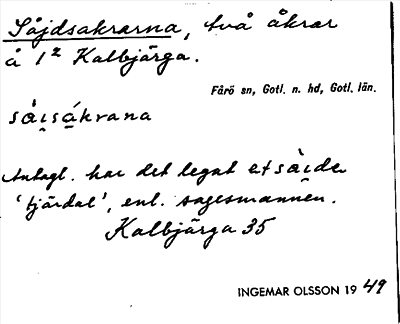 Såjdsakrarna, två åkrar
å 1² Kalbjärga.
Fårö sn, Gotl. n. hd, Gotl. län.
sàisákrana
Antagl. har det legat ett sàide
'tjärdal', enl. sagesmannen.
Kalbjärga 35
INGEMAR OLSSON 19 49